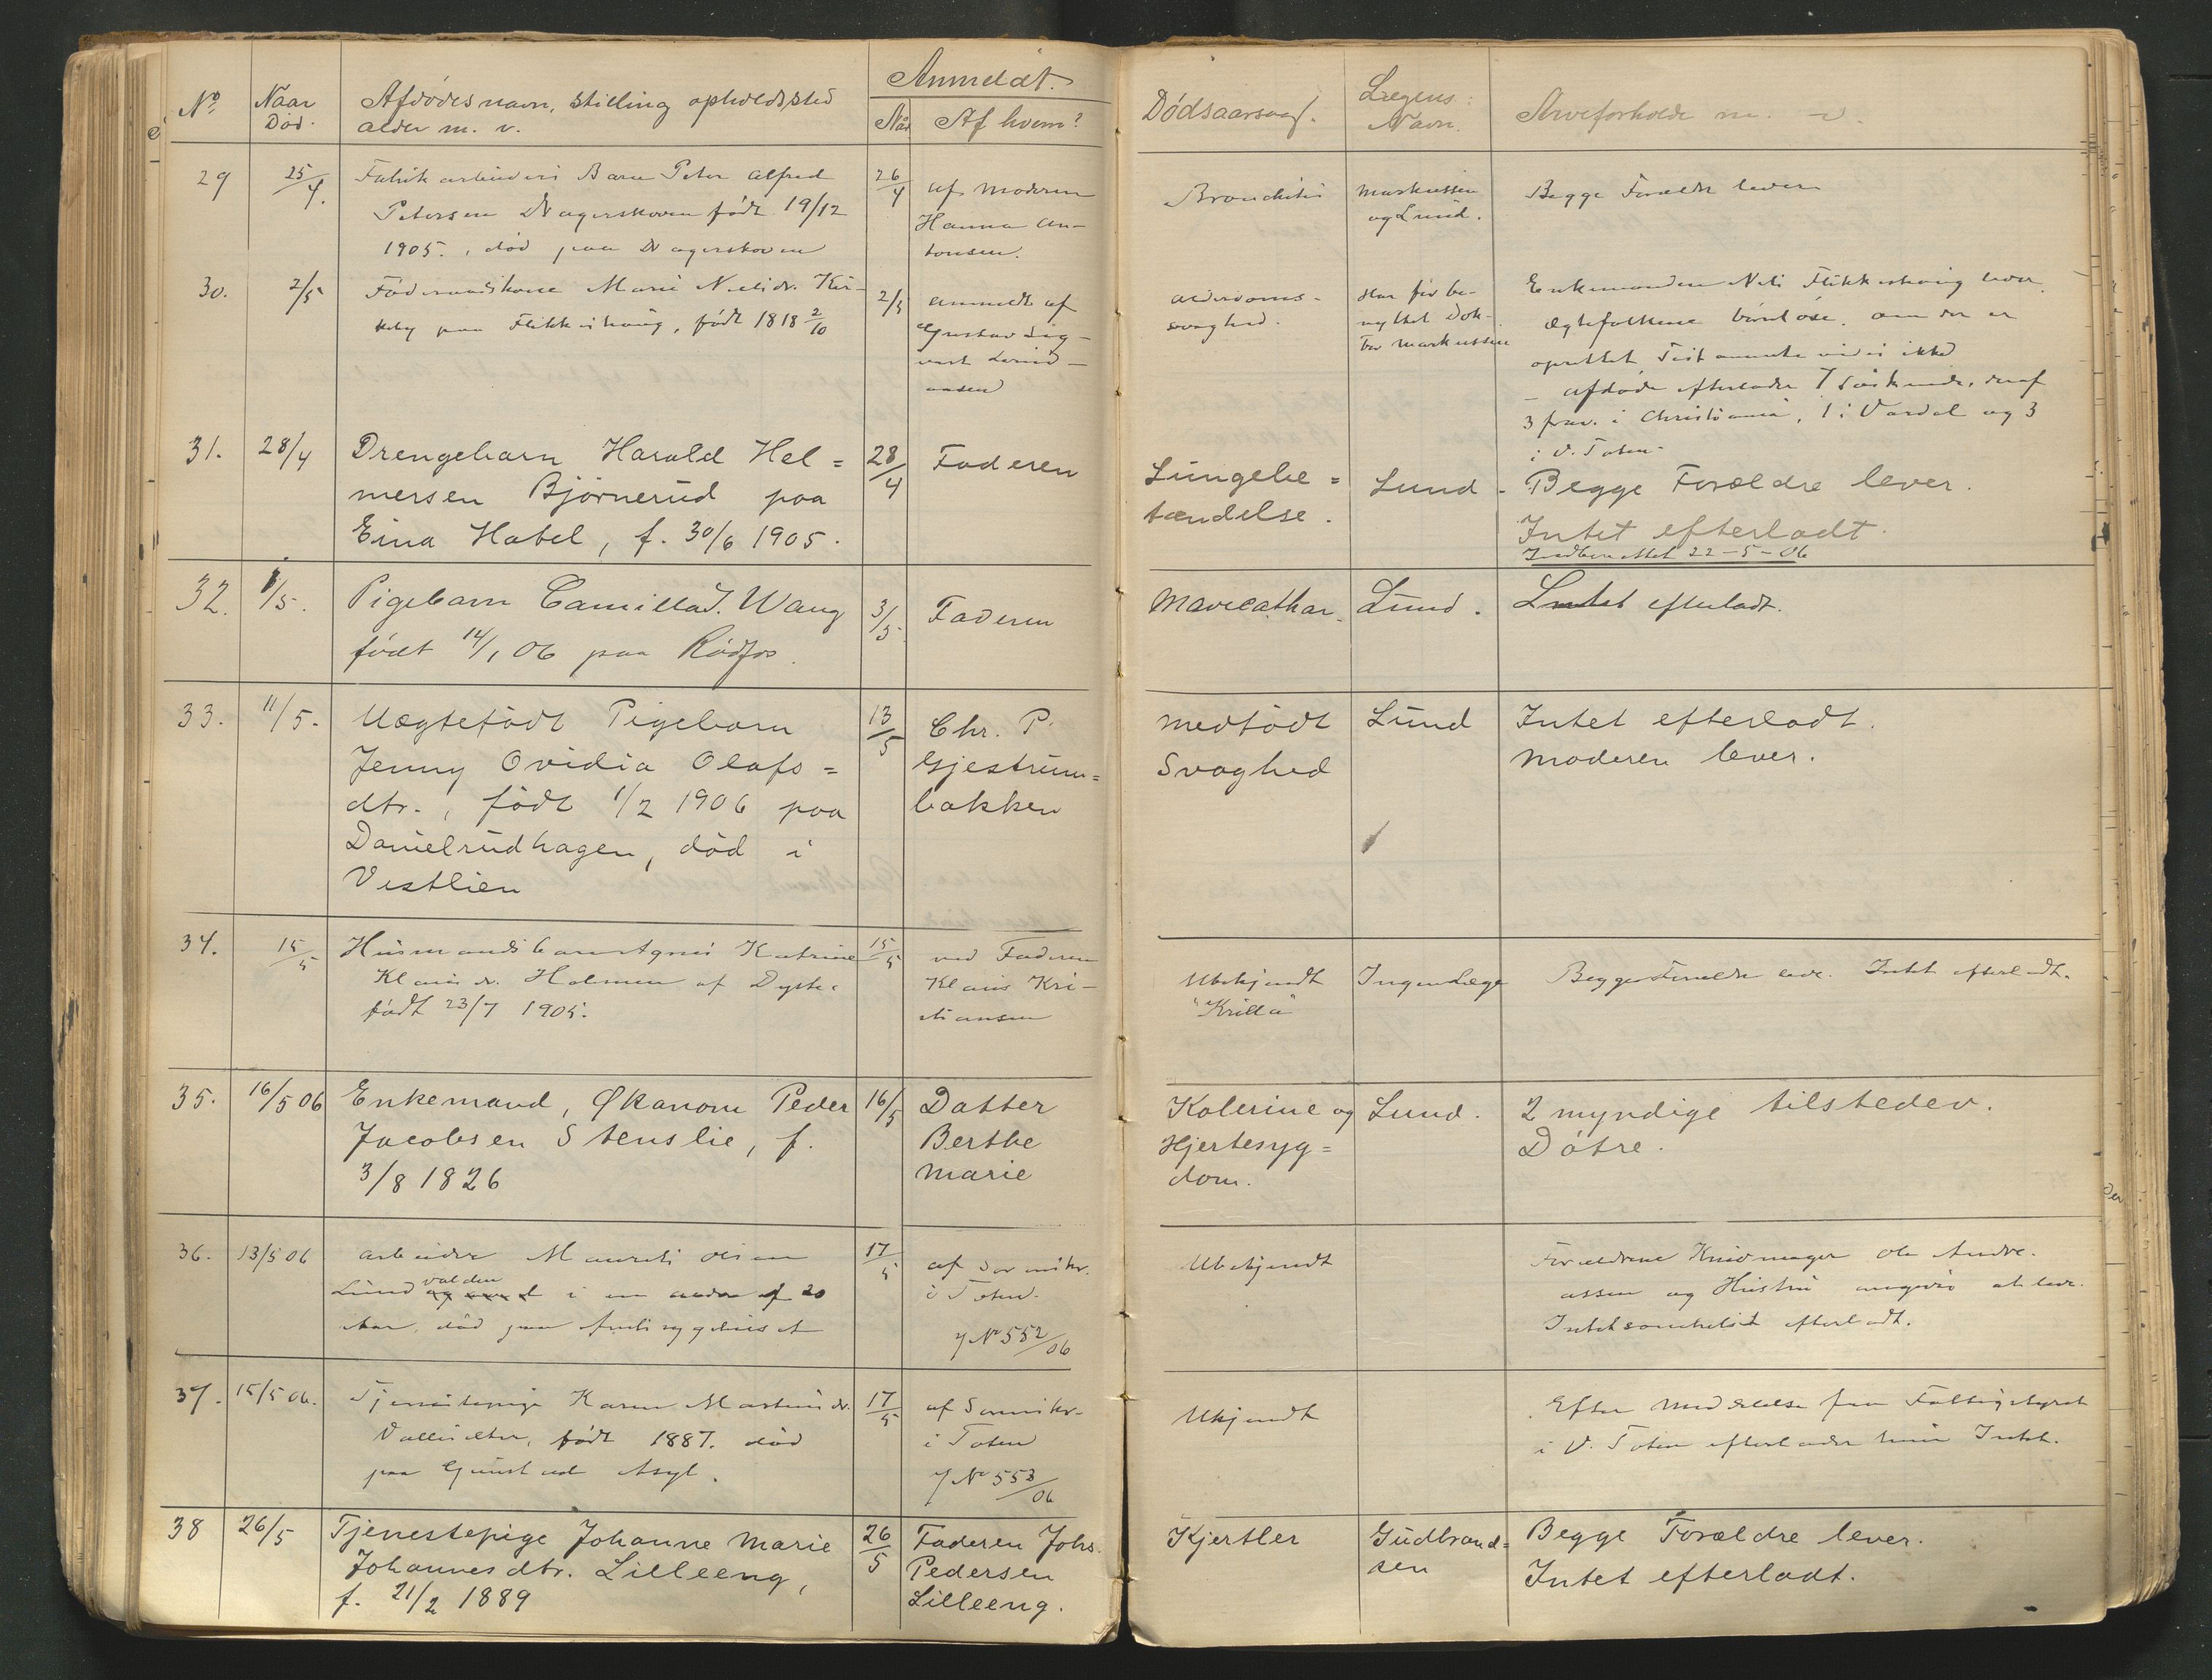 No. Naar Død. Afdødes navn, stilling opholdssted alder m. v. Anmeldt. Når Af hvem? Dødsaarsag. Lægens Navn. Arveforholde m. v.
29 25/4. Fabrikarbeiders Barn Peter Alfred 26/4 af Moderen Bronchitis Markussen Begge Forældre lever
Petersen født 19/12 Hanna An- og Lund.
1905., død paa tonsen.
30. 2/5 Føderaadskone Marie Nilsdr. Kir- 2/5 anmeldt af Alderdoms- Har før be- Enkemanden Nils Flikkeshaug lever
keby paa Flikkeshaug, født 1818 2/10 Gustav Sig- svaghed. nyttet Dok- Ægtefolkene barnløse. om der er
vart tor Markussen oprettet Testamente vides ikke
- afdøde efterlader 7 Søskende, deraf
3 frav. i Christiania, 1 i Vardal og 3
i V. Toten.
31. 28/4 Drengebarn Harald Hel= 28/4 Faderen Lungebe= Lund. Begge Forældre lever.
mersen Bjørnerud paa tændelse. Intet efterladt.
Eina Hotel, f. 30/6 1905. Indberettet 22-5-06
32. 1/5. Pigebarn Camilla J. Wang 3/5. Faderen Mavecathar. Lund. Intet efterladt.
født 14/1 06 paa Rødfos.
33. 11/5. Uægtefødt Pigebarn 13/5 Chr. P. Medfødt Lund Intet efterladt.
Jenny Ovidia Olafs= Gjestrum= Svaghed Moderen lever.
dtr., født 1/2 1906 paa bakken
Danielrudhagen, død i
Vestlien
34. 15/5 Husmandsbarn Agnes Katrine 15/5 ved Faderen Ubekjendt Ingen Læge Begge Forældre lever. Intet efterladt.
Klausdr. Holmen af Dyste. Klaus Kri- "Krilla"
født 23/7 1905. stiansen
35. 16/5 06 Enkemand, Økonom Peder 16/5 Datter Kolerine og Lund. 2 myndige tilstedev.
Jacobsen Stenslie, f. Berthe Hjertesyg= Døtre.
3/8 1826 Marie dom.
36. 13/5 06 Arbeider Maurits Olsen 17/5 af Sorenskr. Ubekjendt Forældrene Knivmager Ole Andre-
Lund valden i en alder af 20 i Toten. assen og Hustru angives at leve.
Aar, død paa Amtssygehuset J No 552/06 Intetsomhelst efterladt.
37. 15/5 06. Tjenestepige Karen Martinsdr. 17/5 af Sorenskr. Ukjendt Efter Meddelelse fra Fattigstyret
født 1887. død i Toten i V. Toten efterlader hun Intet.
paa Asyl. J No 553/06
38 26/5 Tjenestepige Johanne Marie 26/5 Faderen Johs. Kjertler Gudbrand= Begge Forældre lever.
Johannesdtr. Lilleeng, Pedersen sen Intet efterladt.
f. 21/2 1889 Lilleeng.